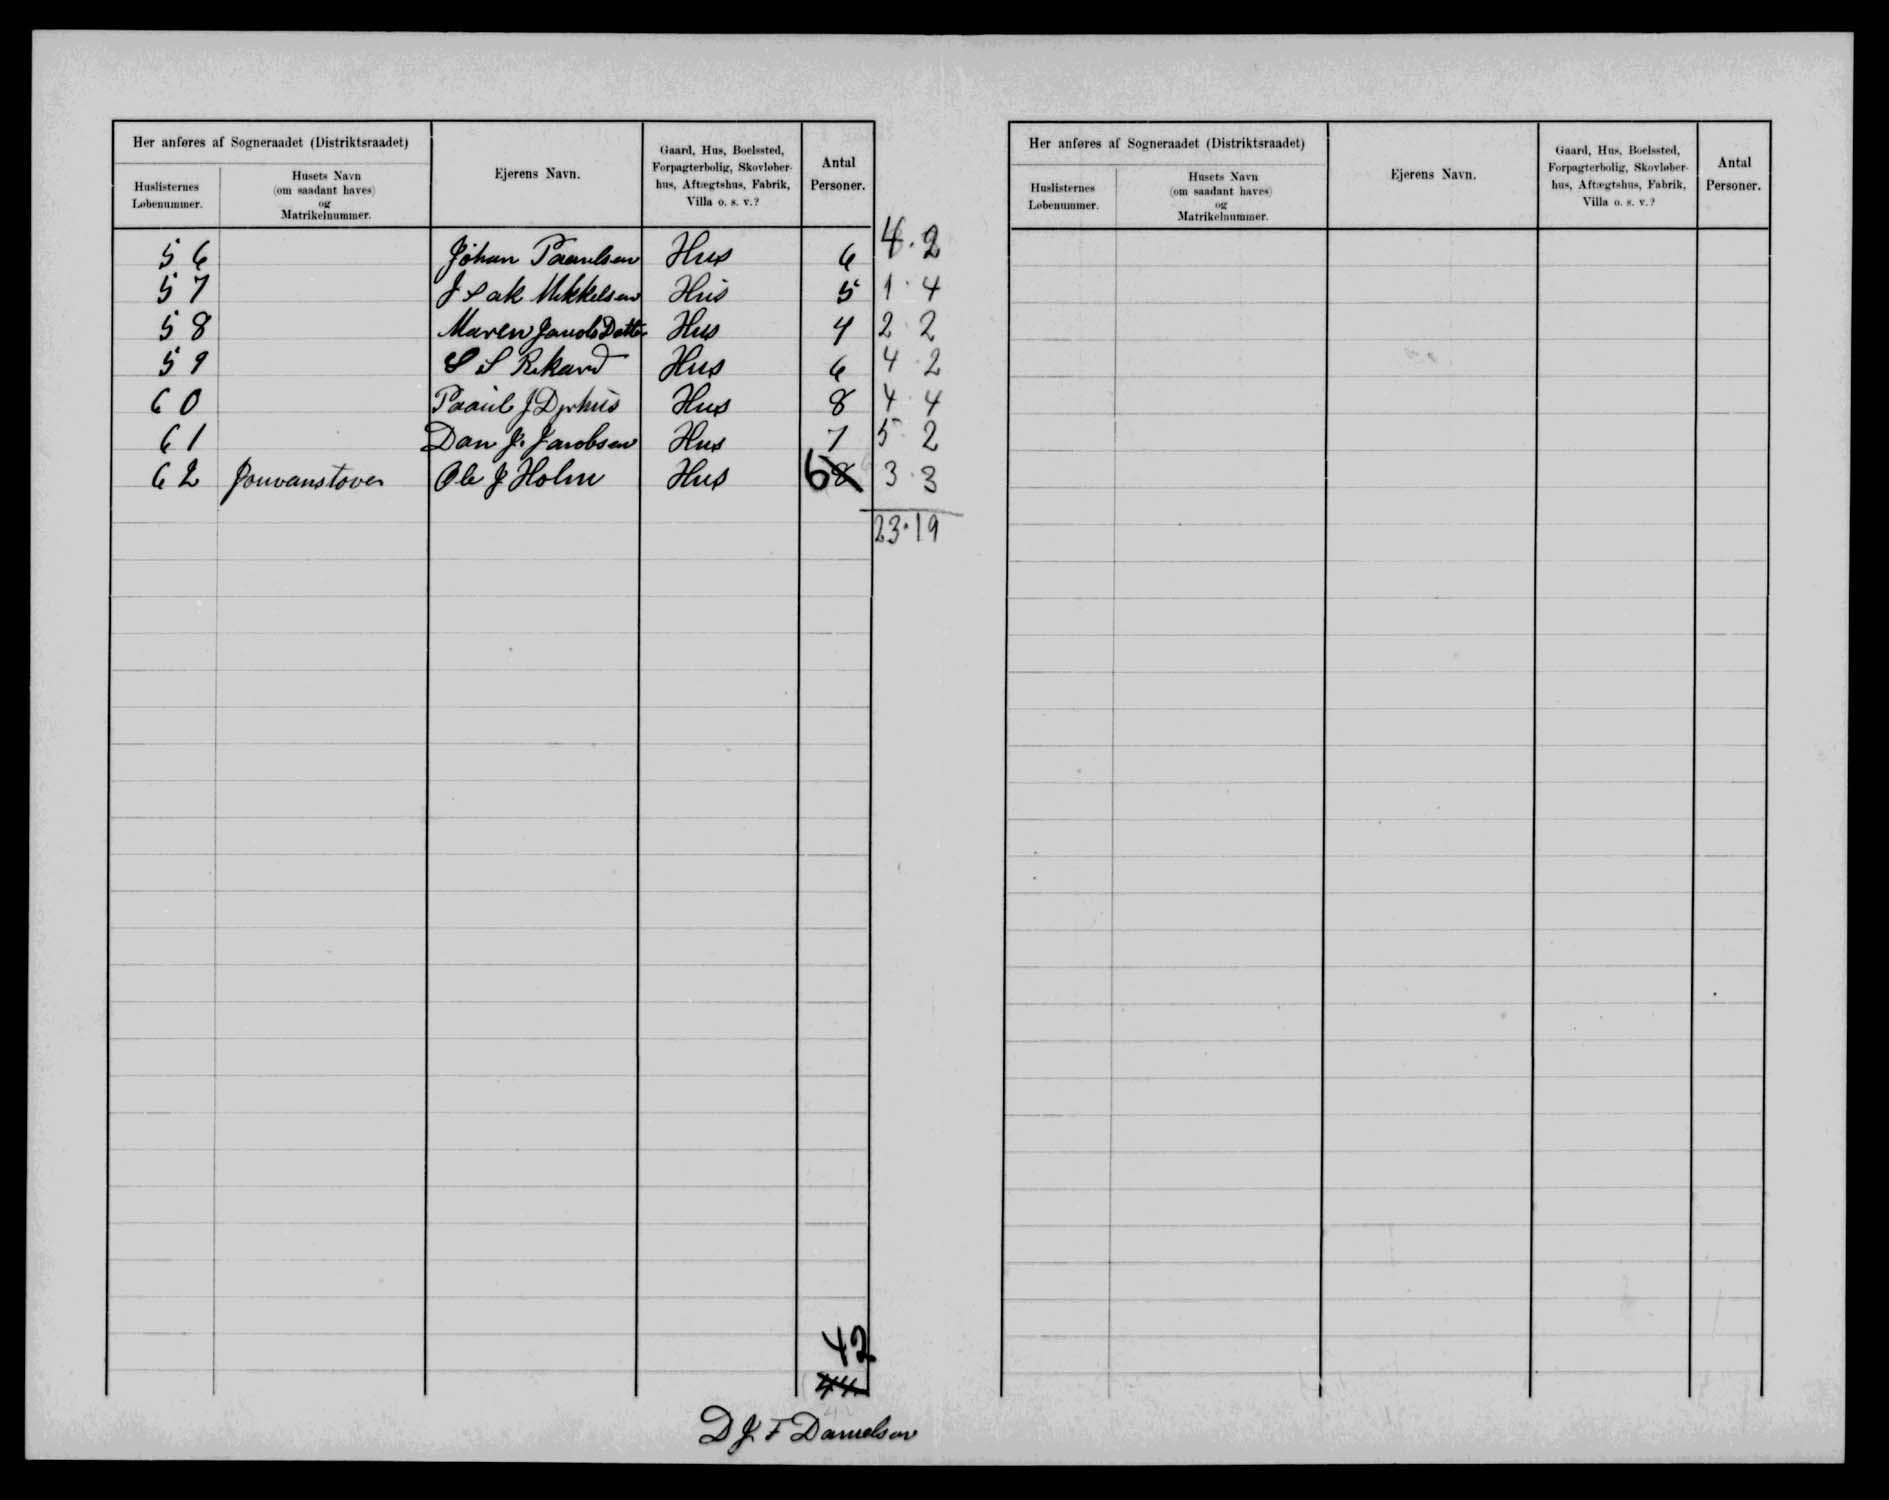 Her anføres af Sogneraadet (Distriktsraadet)
Huslisternes Løbenummer.
Husets Navn (om saadant haves) og Matrikelnummer.
Ejerens Navn.
Gaard, Hus, Boelssted, Forpagterbolig, Skovløber- hus, Aftægtshus, Fabrik, Villa o. s. v.?
Antal Personer.
56 Johan Paaulsen Hus 6 4·2
57 Isak Mikkelsen Hus 5 1·4
58 Maren Jacobs Datter Hus 4 2·2
59 Hus 6 4·2
60 J Hus 8 4·4
61 Dan J. Jacobsen Hus 7 5·2
62 Ole J Holm Hus 6 8 3·3
23·19
42
44
D J F Danielsen
Her anføres af Sogneraadet (Distriktsraadet)
Huslisternes Løbenummer.
Husets Navn (om saadant haves) og Matrikelnummer.
Ejerens Navn.
Gaard, Hus, Boelssted, Forpagterbolig, Skovløber- hus, Aftægtshus, Fabrik, Villa o. s. v.?
Antal Personer.